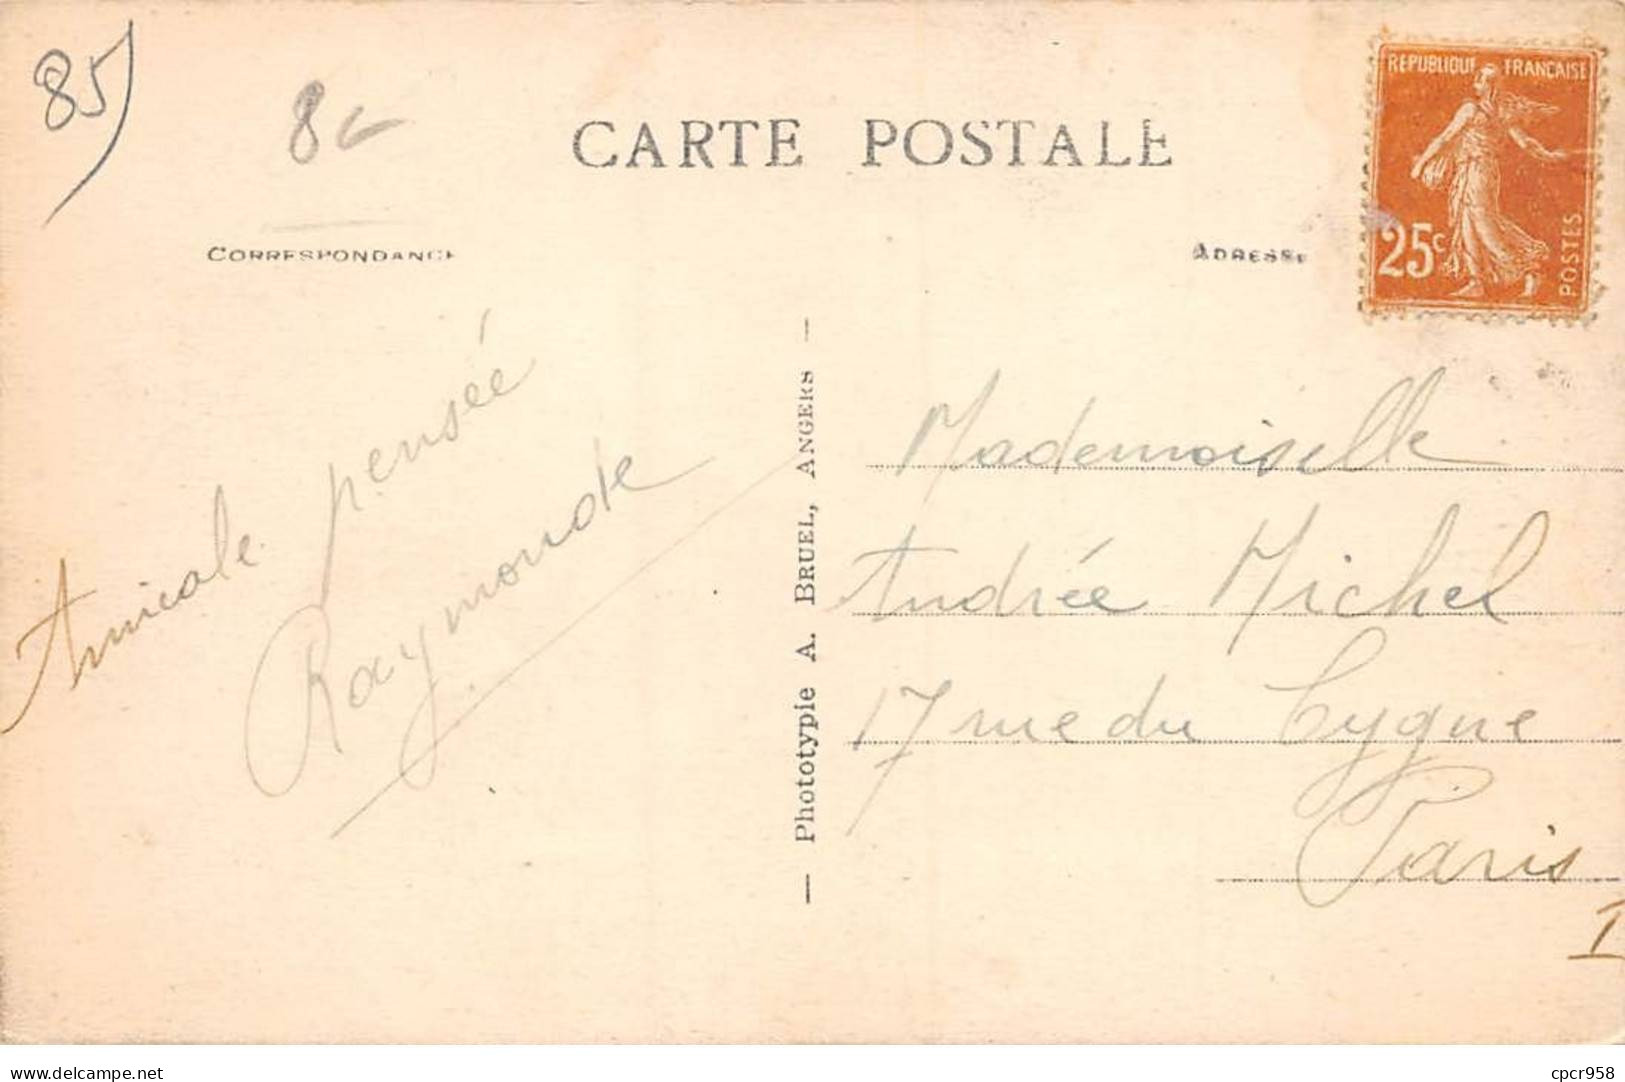 85
8
CARTE POSTALE
REPUBLIQUE FRANÇAISE
25c
POSTES
CORRESPONDANCE
ADRESSE
Amicale pensée
Raymonde
— Phototypie A. BRUEL, ANGERS —
Mademoiselle
Andrée Michel
17 rue du Cygne
Paris
I
delcampe.net
cpcr958